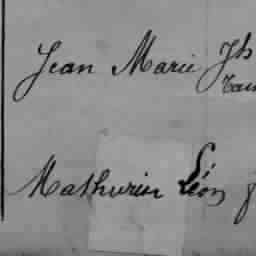 Jean Marie Jh
Mathurin Léon